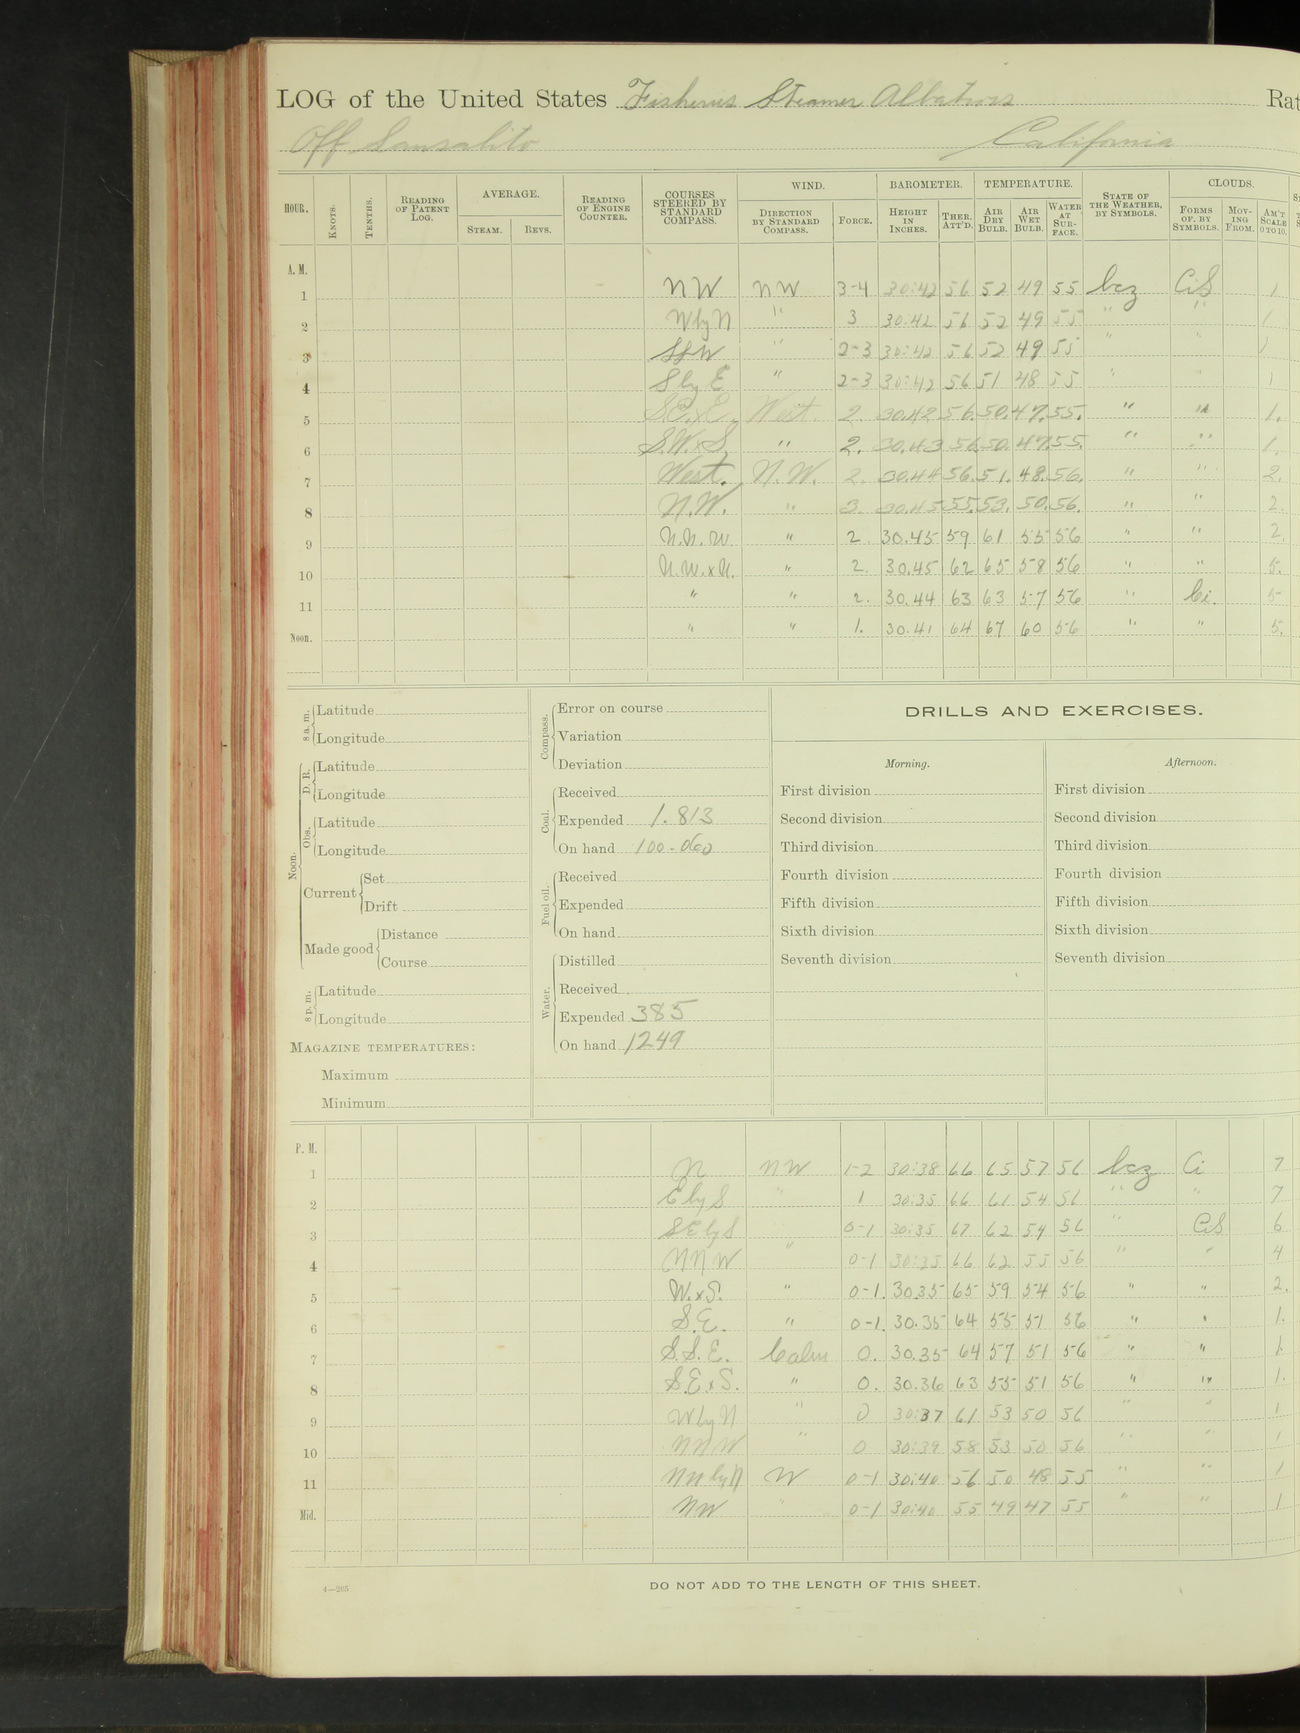 LOG of the United States Fisheries Steamer Albatross Rat
Off Sausalito California
HOUR. KNOTS. TENTHS. READING OF PATENT LOG. AVERAGE. STEAM. REVS. READING OF ENGINE COUNTER. COURSES STEERED BY STANDARD COMPASS. WIND. DIRECTION BY STANDARD COMPASS. FORCE. BAROMETER. HEIGHT IN INCHES. THER. ATT'D. TEMPERATURE. AIR DRY BULB. AIR WET BULB. WATER AT SURFACE. STATE OF THE WEATHER, BY SYMBOLS. CLOUDS. FORMS OF, BY SYMBOLS. MOVING FROM. AM'T SCALE 0 TO 10.
A. M.
1 NW NW 3-4 30:42 56 52 49 55 bcz CiS 1
2 W by N " 3 30:42 56 52 49 55 " " 1
3 SSW " 2-3 30:42 56 52 49 55 " 1
4 S by E " 2-3 30:42 56 51 48 55 " " 1
5 S.E.xE. West. 2. 30.42 56. 50. 47. 55. " " 1.
6 S.W.xS. " 2. 30.43 56. 50. 47. 55. " " 1.
7 West. N.W. 2. 30.44 56. 51. 48. 56. " " 2.
8 N.W. " 3. 30.45 55. 53. 50. 56. " " 2.
9 N.N.W. " 2. 30.45 59 61 55 56 " " 2.
10 N.W.x N. " 2. 30.45 62 65 58 56 " " 5.
11 " " 2. 30.44 63 63 57 56 " Ci. 5
Noon. " " 1. 30.41 64 67 60 56 " " 5.
8 a. m. Latitude
Longitude
Noon. D. R. Latitude
Longitude
Obs. Latitude
Longitude
Current Set
Drift
Made good Distance
Course
8 p. m. Latitude
Longitude
MAGAZINE TEMPERATURES:
Maximum
Minimum
Compass. Error on course
Variation
Deviation
Coal. Received
Expended 1.813
On hand 100-060
Fuel oil. Received
Expended
On hand
Water. Distilled
Received
Expended 385
On hand 1249
DRILLS AND EXERCISES.
Morning. Afternoon.
First division First division
Second division Second division
Third division Third division
Fourth division Fourth division
Fifth division Fifth division
Sixth division Sixth division
Seventh division Seventh division
P. M.
1 N NW 1-2 30:38 66 65 57 56 bcz Ci 7
2 E by S " 1 30:35 66 61 54 56 " " 7
3 SE by S 0-1 30:35 67 62 54 56 " CiS 6
4 NNW " 0-1 30:35 66 62 55 56 " " 4
5 W.xS. " 0-1. 30.35 65 59 54 56 " " 2.
6 S.E. " 0-1. 30.35 64 55 51 56 " " 1.
7 S.S.E. Calm 0. 30.35 64 57 51 56 " " 1.
8 S.E.xS. " 0. 30.36 63 55 51 56 " " 1.
9 W by N " 0 30:37 61 53 50 56 " " 1
10 NNW " 0 30:39 58 53 50 56 " " 1
11 NW by N W 0-1 30:40 56 50 48 55 " " 1
Mid. NW " 0-1 30:40 55 49 47 55 " " 1
4—265
DO NOT ADD TO THE LENGTH OF THIS SHEET.